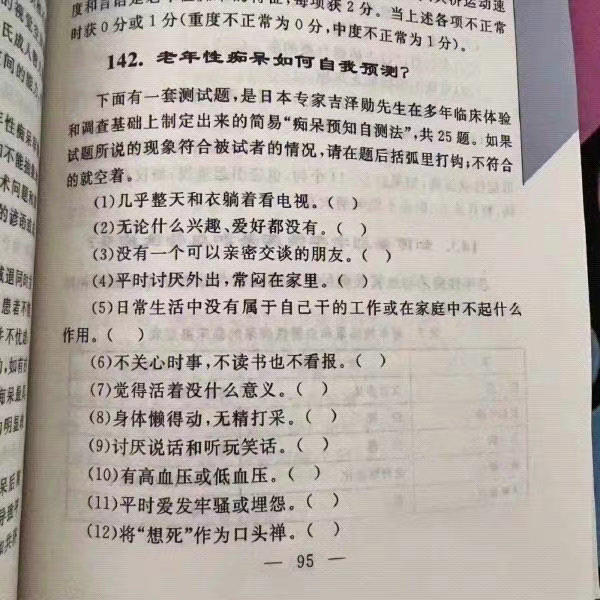 度和言语是
每项获2分。当上述各项不正常
时获0分或1分(重度不正常为0分,中度不正常为1分)。
142. 老年性痴呆如何自我预测?
下面有一套测试题,是日本专家吉泽勋先生在多年临床体验
和调查基础上制定出来的简易“痴呆预知自测法”,共25题。如果
试题所说的现象符合被试者的情况,请在题后括弧里打钩;不符合
的就空着。
(1)几乎整天和衣躺着看电视。( )
(2)无论什么兴趣、爱好都没有。( )
(3)没有一个可以亲密交谈的朋友。( )
(4)平时讨厌外出,常闷在家里。( )
(5)日常生活中没有属于自己干的工作或在家庭中不起什么
作用。( )
(6)不关心时事,不读书也不看报。( )
(7)觉得活着没什么意义。( )
(8)身体懒得动,无精打采。( )
(9)讨厌说话和听玩笑话。( )
(10)有高血压或低血压。( )
(11)平时爱发牢骚或埋怨。( )
(12)将“想死”作为口头禅。( )
— 95 —